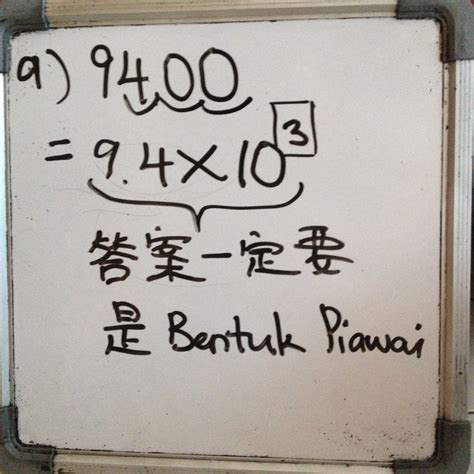 a) 9400
= 9.4×10³
答案一定要
是 Bentuk Piawai